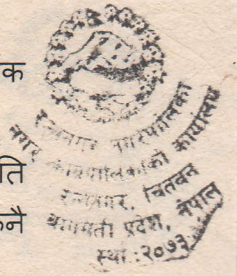 क
रत्ननगर नगरपालिका
नगर कार्यपालिकाको कार्यालय
ति
रत्ननगर, चितवन
बागमती प्रदेश, नेपाल
नै
स्था : २०७३